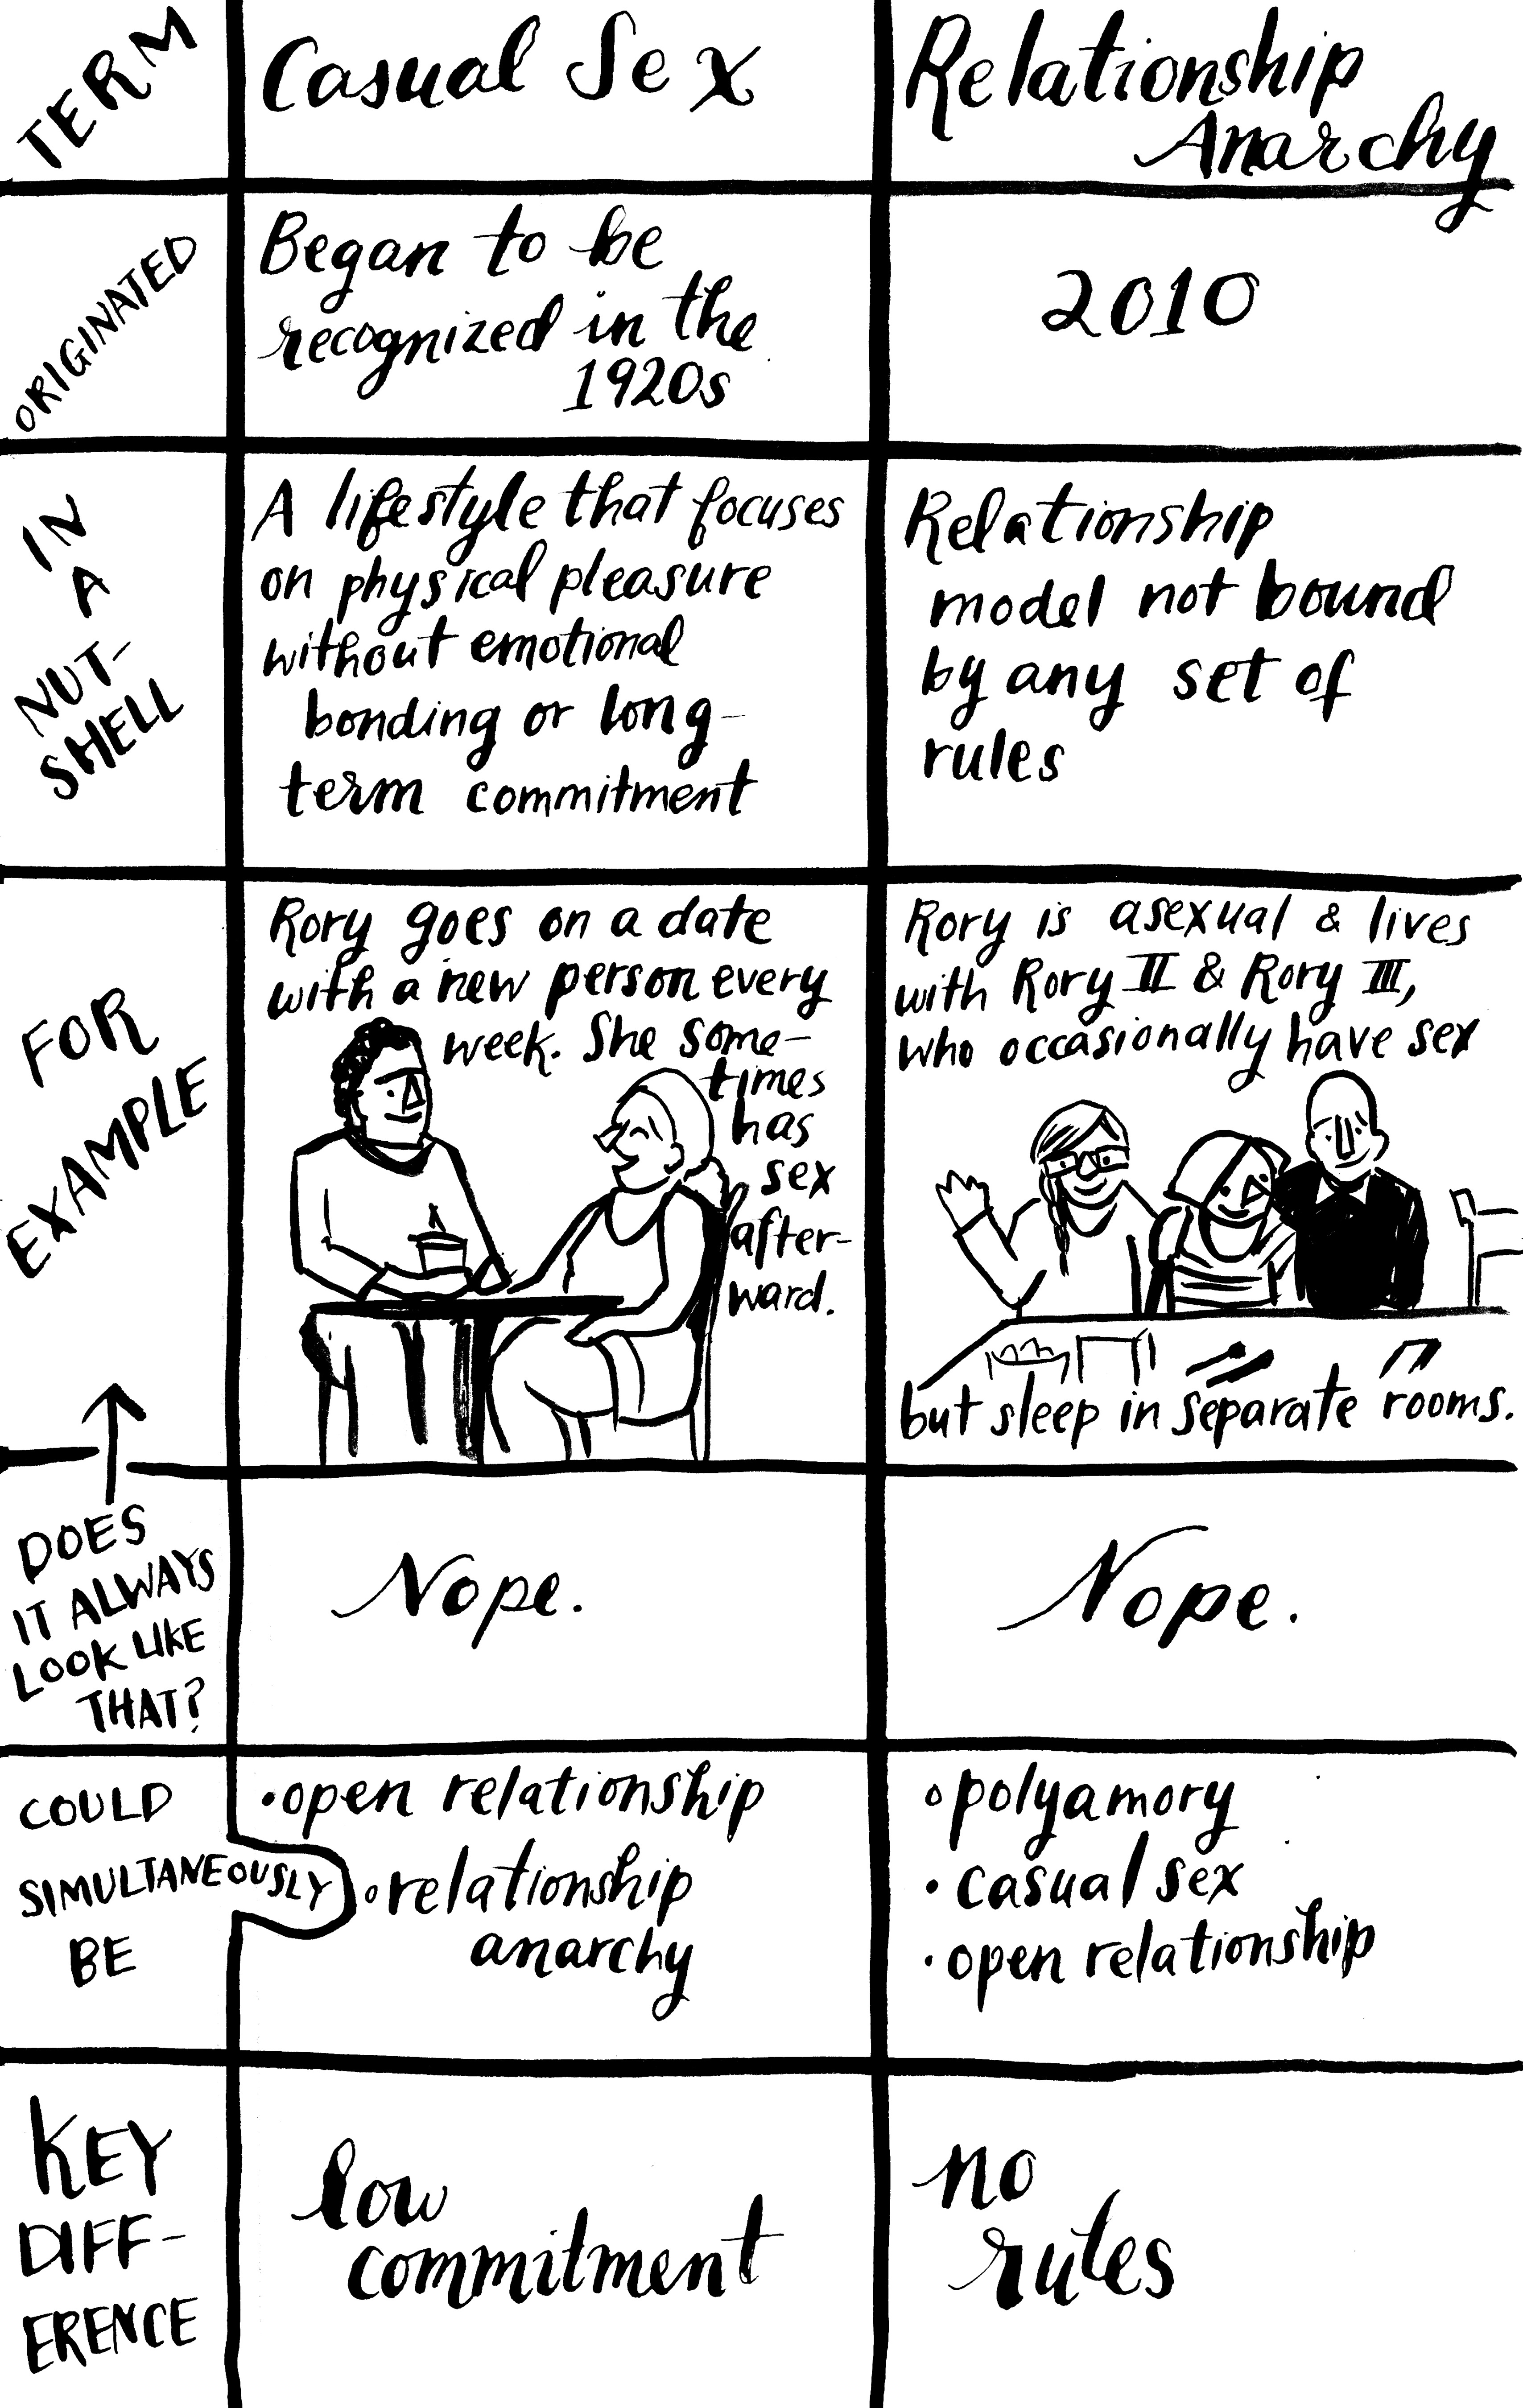 TERM
Casual Sex
Relationship
Anarchy
ORIGINATED
Began to be
recognized in the
1920s
2010
IN
A
NUT-
SHELL
A lifestyle that focuses
on physical pleasure
without emotional
bonding or long-
term commitment
Relationship
model not bound
by any set of
rules
FOR
EXAMPLE
Rory goes on a date
with a new person every
week. She some-
times
has
sex
after-
ward.
Rory is asexual & lives
with Rory II & Rory III,
who occasionally have sex
but sleep in separate rooms.
DOES
IT ALWAYS
LOOK LIKE
THAT?
Nope.
Nope.
COULD
SIMULTANEOUSLY
BE
•open relationship
•relationship
anarchy
•polyamory
•casual sex
•open relationship
KEY
DIFF-
ERENCE
low
commitment
no
rules